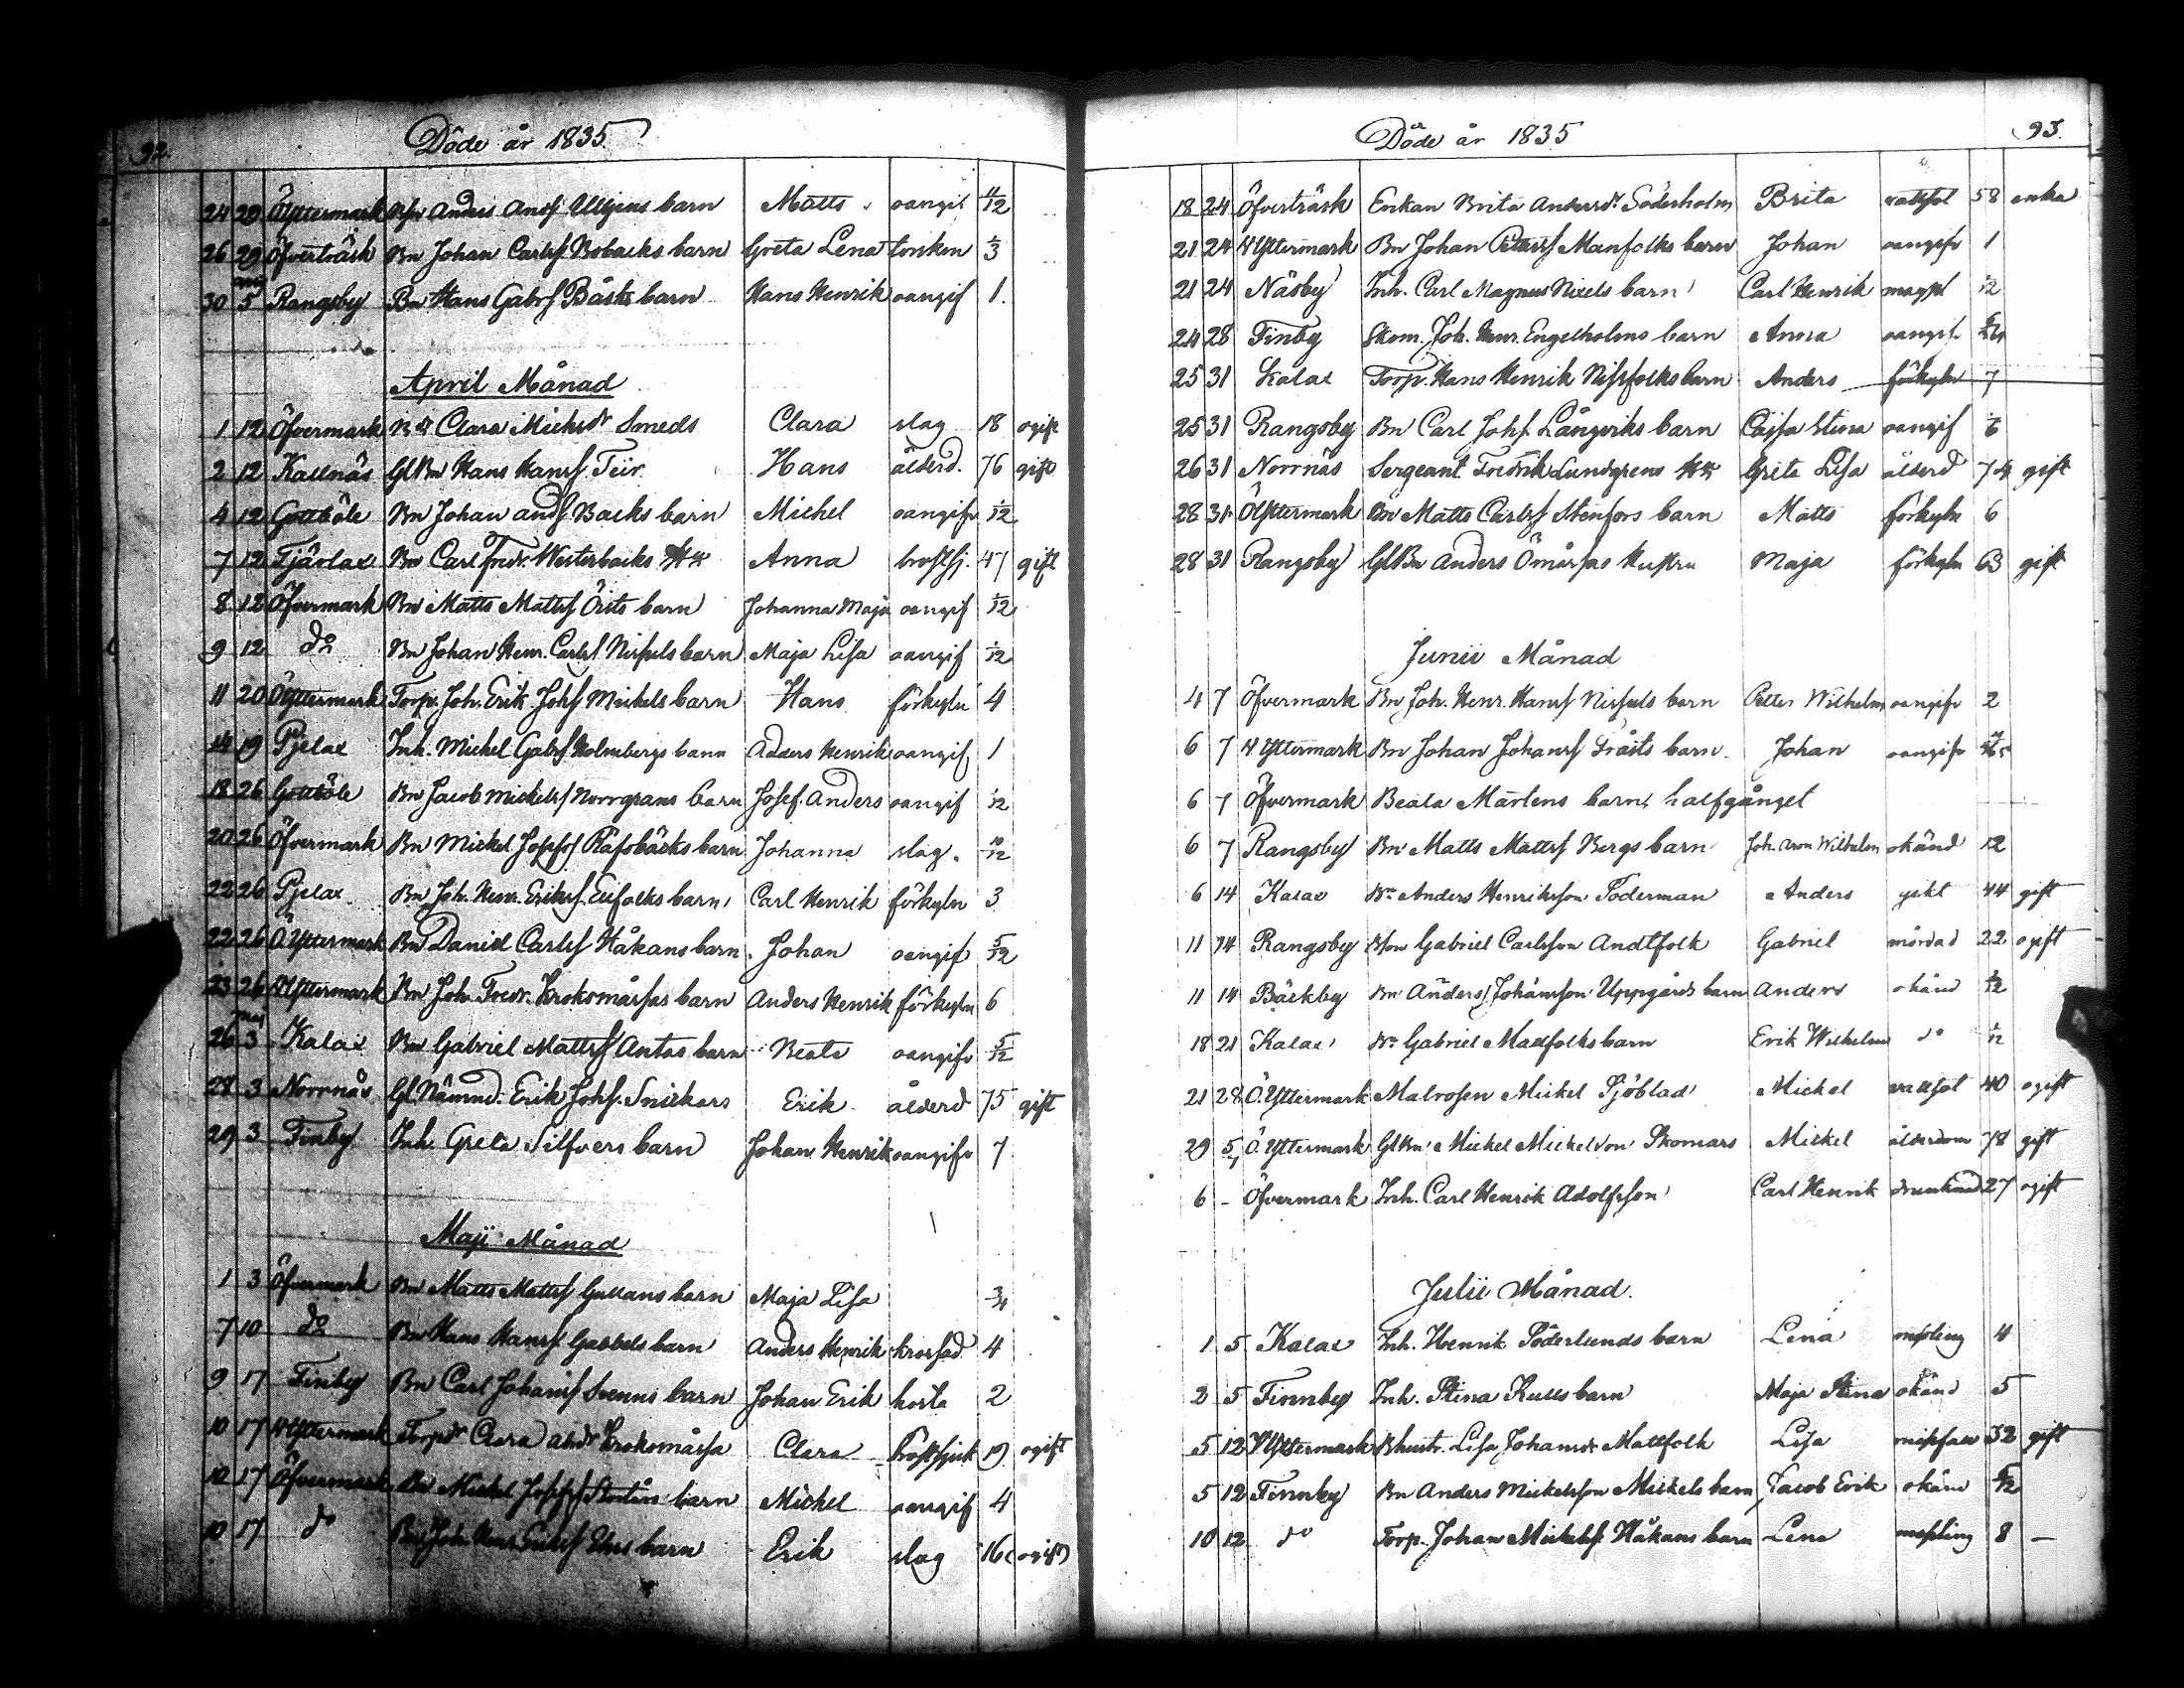 92.
Döde år 1835
24 29 Ö Yttermark Anders Andsf Ullgrens barn Matts oangif 11/12
26 29 Öfverträsk Bn Johan Carlsf Bobacks barn Greta Lena torsken 1/3
30 maj 5 Rangsby Bn Hans Gabrsf Båsks barn Hans Henrik oangif 1.
April Månad
1 12 Öfvermark Clara Michsdr Smeds Clara slag 18 ogift
2 12 Kallnäs Gl Bn Hans Hansf Teir Hans ålderd. 76 gift
4 12 Gottböle Bn Johan andsf Backs barn Michel oangifv 1/12
7 12 Tjärlax Bn Carl Fredr. Westerbacks Anna bröstsj. 47 gift
8 12 Öfvermark Bn Matts Mattsf Örits barn Johanna Maja oangif 1/12
9 12 do Bn Johan Henr. Carlsf Nissils barn Maja Lisa oangif 1/12
11 20 Ö Yttermark Torp. Joh. Erik Johsf Mickels barn Hans förkyln 4
14 19 Pjelax Inh. Mickel Gabrsf Holmbergs barn Anders Henrik oangif 1
18 26 Gottböle Bn Jacob Mickelsf Norrgrans barn Josef Anders oangif 1/12
20 26 Öfvermark Bn Mickel Josefsf Räfsbäcks barn Johanna slag. 10/12
22 26 Pjelax Bn Joh. Henr. Eriksf. Eifolks barn Carl Henrik förkyln 3
22 26 Ö Yttermark Bn Daniel Carlsf Håkans barn Johan oangif 5/12
23 26 N Yttermark Bn Joh. Fredr. Krokomårsas barn Anders Henrik förkyln 6
26 maj 3 Kalax Bn Gabriel Mattsf Antas barn Beata oangifv 5/12
28 3 Norrnäs Gl. Nämnd. Erik Johsf. Snickars Erik ålderd 75 gift
29 3 Finby Inh. Greta Silfvers barn Johan Henrik oangifv 7
Maji Månad
1 3 Öfvermark Bn Matts Mattsf Gullans barn Maja Lisa 3/4
7 10 do Bn Hans Hansf Gabbels barn Anders Henrik krossad 4
9 17 Finby Bn Carl Johansf Svenns barn Johan Erik hosta 2
10 17 N Yttermark Torpdr Clara Krokomårsa Clara bröstsjuk 19 ogift
12 17 Öfvermark Bn Mickel Josefsf barn Michel oangif 4
10 17 do Bn Joh. Henr. barn Erik slag 16 ogift
93.
Döde år 1835
18 24 Öfverträsk Enkan Brita Andersdr Söderholm Brita vattsot 58 enka
21 24 N Yttermark Bn Johan Pettersf Manfolks barn Johan oangifv 1
21 24 Näsby Inh. Carl Magnus Nixels barn Carl Henrik magpl 1/12
24 28 Finby Skom. Joh. Henr. Engelholms barn Anna oangifv
25 31 Kalax Torp. Hans Henrik Nissfolks barn Anders förkyln 7
25 31 Rangsby Bn Carl Johsf. Långviks barn Cajsa Stina oangif 1/6
26 31 Norrnäs Sergeant Fredrik Lundgrens Greta Lisa ålderd 74 gift
28 31 Ö Yttermark Bn Matts Carlsf Stenfors barn Matts förkyln 6
28 31 Rangsby Gl Bn Anders Ömårsas hustru Maja förkyln 63 gift
Junii Månad
4 7 Öfvermark Bn Joh. Henr. Hansf Nissils barn Petter Wilhelm oangifv 2
6 7 N Yttermark Bn Johan Johansf Tråsts barn Johan oangifv
6 7 Öfvermark Beata Mårtens barn, halfgånget
6 7 Rangsby Bn Matts Mattsf Bergs barn Joh. Aron Wilhelm okänd 12
6 14 Kalax Bn Anders Henriksson Söderman Anders gikt 44 gift
11 14 Rangsby Bson Gabriel Carlsson Andtfolk Gabriel mördad 22 ogift
11 14 Bäckby Bn Anders Johansson Uppgårds barn Anders okänd
18 21 Kalax Bn Gabriel Madfolks barn Erik Wilhelm do 1/12
21 28 Ö. Yttermark Matrosen Mickel Sjöblad Mickel vattsot 40 ogift
29 5/7 Ö. Yttermark Gl Bn Mickel Mickelsson Skomars Mickel ålderdom 78 gift
6 - Öfvermark Inh. Carl Henrik Adolfsson Carl Henrik drunknad 27 ogift
Julii Månad.
1 5 Kalax Inh. Henrik Söderlunds barn Lena mässling 4
2 5 Finnby Inh. Stina Kulls barn Maja Stina okänd 5
5 12 N Yttermark Bhustr. Lisa Johansdr Mattfolk Lisa missfall 32 gift
5 12 Finnby Bn Anders Mickelsson Mickels barn Jacob Erik okänd
10 12 do Torp. Johan Mickelsf Håkans barn Lena mässling 8 —